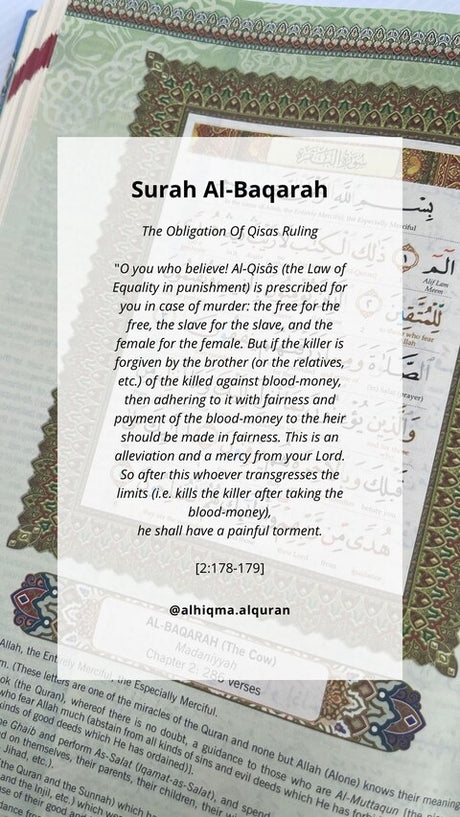 Surah Al-Baqarah
The Obligation Of Qisas Ruling
"O you who believe! Al-Qisâs (the Law of
Equality in punishment) is prescribed for
you in case of murder: the free for the
free, the slave for the slave, and the
female for the female. But if the killer is
forgiven by the brother (or the relatives,
etc.) of the killed against blood-money,
then adhering to it with fairness and
payment of the blood-money to the heir
should be made in fairness. This is an
alleviation and a mercy from your Lord.
So after this whoever transgresses the
limits (i.e. kills the killer after taking the
blood-money),
he shall have a painful torment.
[2:178-179]
@alhiqma.alquran
AL-BAQARAH (The Cow)
Madaniyyah
Chapter 2: 286 verses
Allah, the Entirely Merciful, the Especially Merciful.
m. (These letters are one of the miracles of the Quran and none but Allah (Alone) knows their meaning
ok (the Quran), whereof there is no doubt, a guidance to those who are Al-Muttaqun
who fear Allah much (abstain from all kinds of sins and evil deeds which He has
kinds of good deeds which He has ordained)].
Ghaib and perform As-Salat (Iqamat-as-Salat), and spend
on themselves, their parents, their children, their
Jihad, etc.).
the Quran and the Sunnah) which
and the Injil, etc.) which